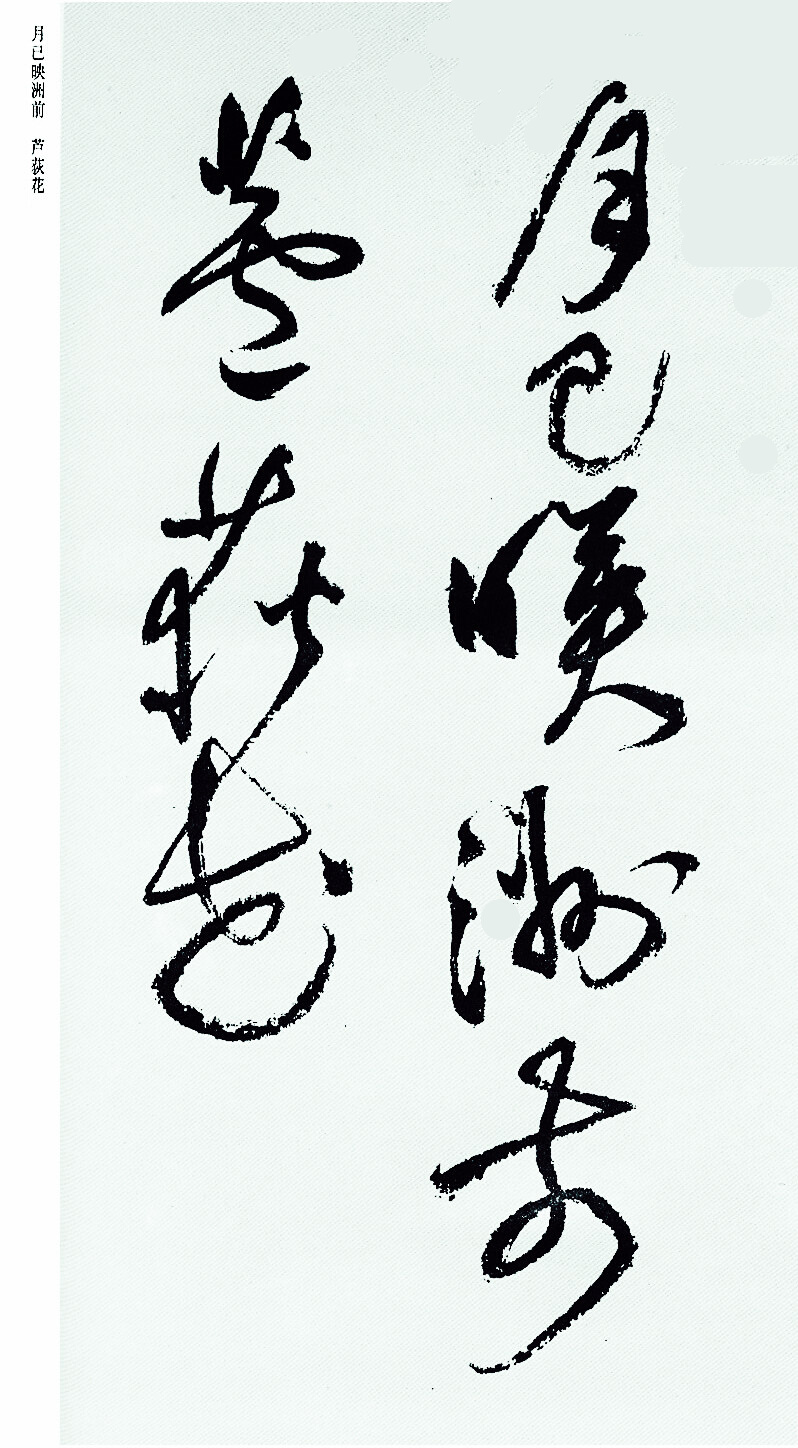 月已映洲前
蘆荻花
月已映洲前 芦荻花